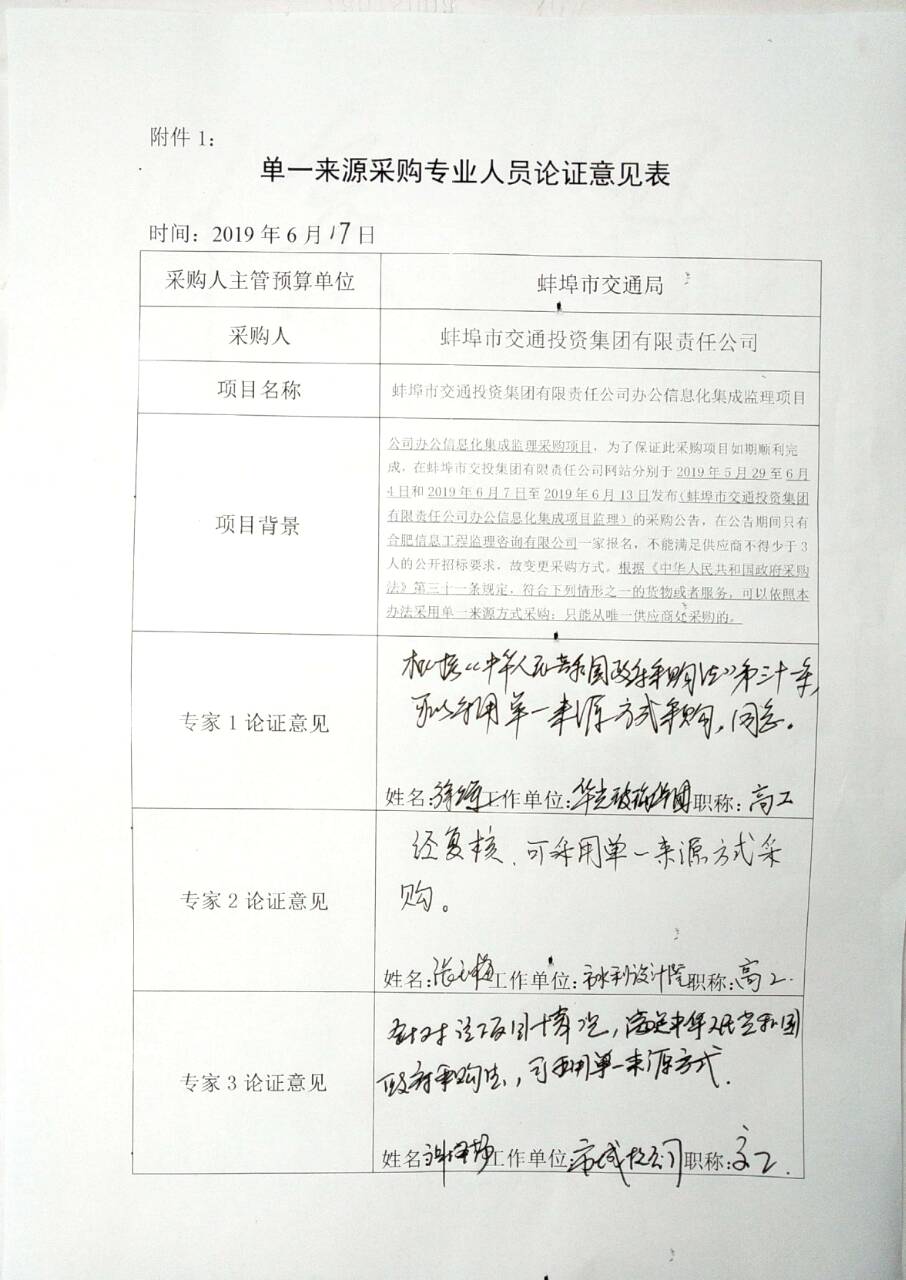 附件 1：
单一来源采购专业人员论证意见表
时间：2019 年 6 月 17 日
采购人主管预算单位 蚌埠市交通局
采购人 蚌埠市交通投资集团有限责任公司
项目名称 蚌埠市交通投资集团有限责任公司办公信息化集成监理项目
项目背景
公司办公信息化集成监理采购项目，为了保证此采购项目如期顺利完
成，在蚌埠市交投集团有限责任公司网站分别于 2019 年 5 月 29 至 6 月
4 日和 2019 年 6 月 7 日至 2019 年 6 月 13 日发布（蚌埠市交通投资集团
有限责任公司办公信息化集成项目监理）的采购公告，在公告期间只有
合肥信息工程监理咨询有限公司一家报名，不能满足供应商不得少于 3
人的公开招标要求，故变更采购方式，根据《中华人民共和国政府采购
法》第三十一条规定，符合下列情形之一的货物或者服务，可以依照本
办法采用单一来源方式采购：只能从唯一供应商处采购的。
专家 1 论证意见
根据《中华人民共和国政府采购法》第三十一条，
可以采用单一来源方式采购，同意。
姓名： 工作单位： 职称：高工
专家 2 论证意见
经复核，可采用单一来源方式采
购。
姓名：张 工作单位：市水利设计院 职称：高工.
专家 3 论证意见
针对该项目情况，满足中华人民共和国
政府采购法，可采用单一来源方式.
姓名 工作单位：市城投公司 职称：高工.